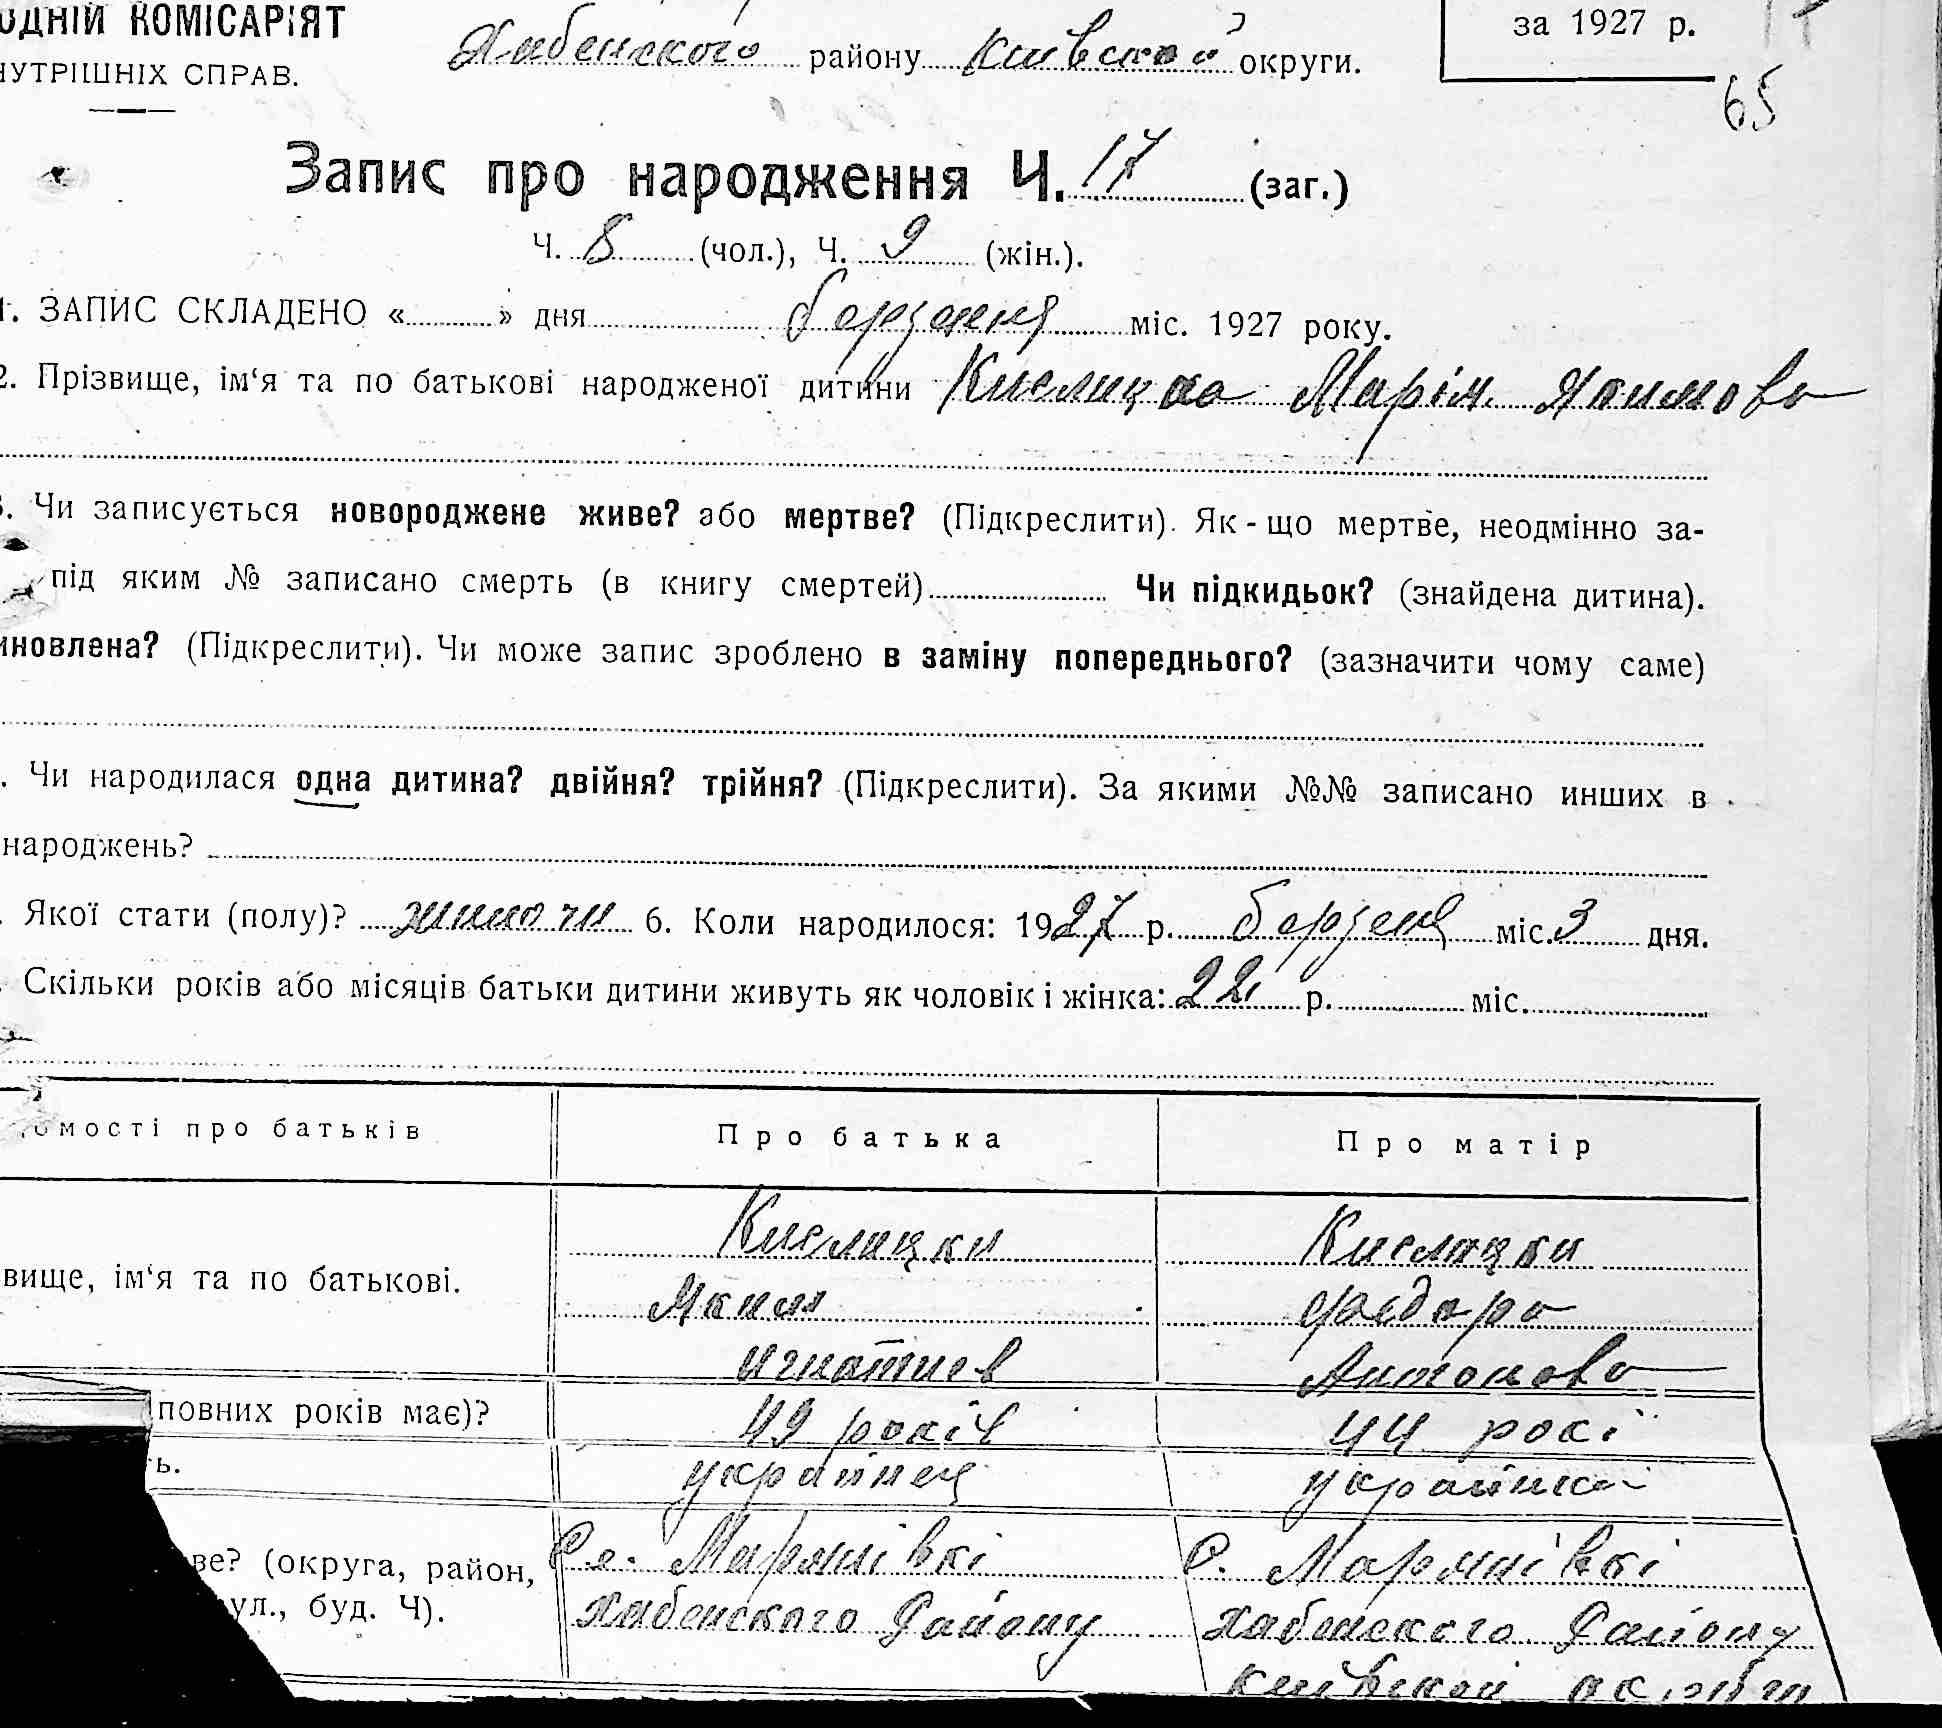 ОДНІЙ КОМІСАРІЯТ
НУТРІШНІХ СПРАВ.
Хабенского району Київской округи.
за 1927 р.
65
Запис про народження Ч. 17 (заг.)
Ч. 8 (чол.), Ч. 9 (жін.).
1. ЗАПИС СКЛАДЕНО «          » дня берзеня міс. 1927 року.
2. Прізвище, ім‘я та по батькові народженої дитини Кислицка Марія Якимова
3. Чи записується новороджене живе? або мертве? (Підкреслити). Як-що мертве, неодмінно за-
під яким № записано смерть (в книгу смертей) Чи підкидьок? (знайдена дитина).
иновлена? (Підкреслити). Чи може запис зроблено в заміну попереднього? (зазначити чому саме)
. Чи народилася одна дитина? двійня? трійня? (Підкреслити). За якими №№ записано инших в
народжень?
. Якої стати (полу)? жиночи 6. Коли народилося: 1927 р. берзеня міс. 3 дня.
. Скільки років або місяців батьки дитини живуть як чоловік і жінка: 22 р. міс.
омості про батьків Про батька Про матір
Кислицки Кислицки
вище, ім‘я та по батькові.
Яким Федора
Игнатиев Антонова
повних років має)? 49 років 44 рокі
ь. украінец украінка
ве? (округа, район, с. Мартинівкі
ул., буд. Ч). Хабенского Району Хабенского Району
Київской округи